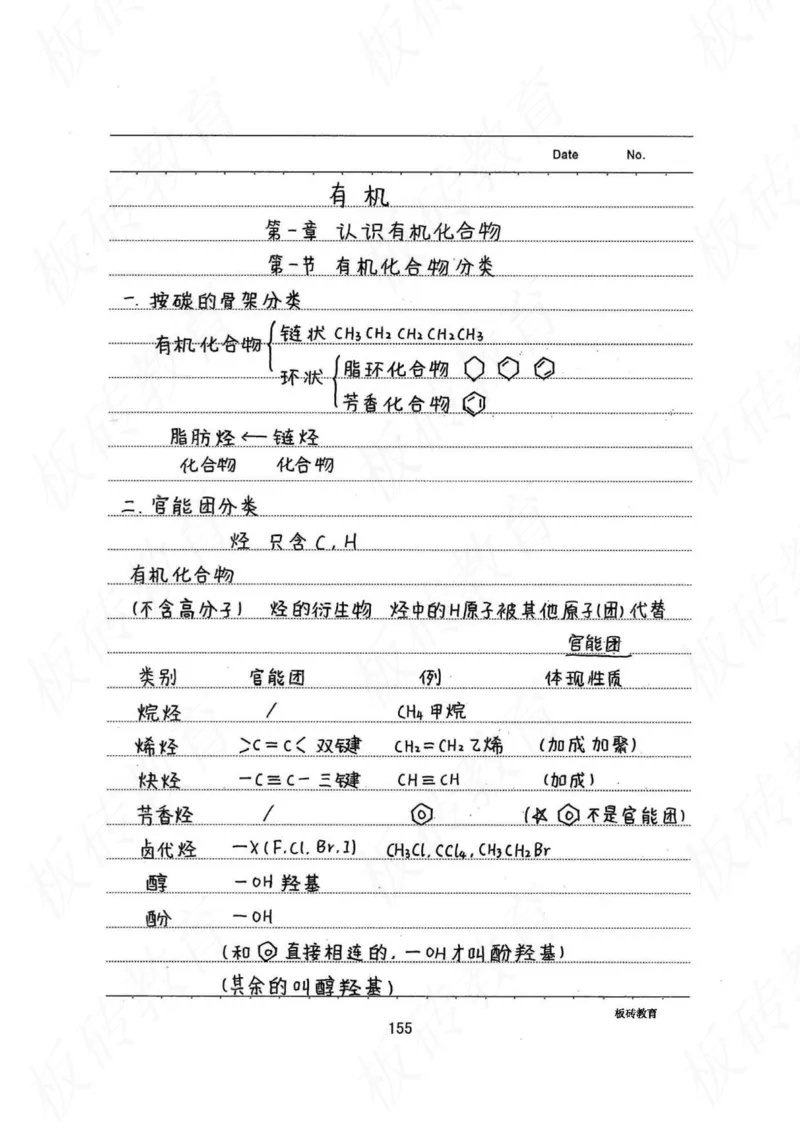 Date No.
有机
第一章 认识有机化合物
第一节 有机化合物分类
一. 按碳的骨架分类
有机化合物 链状 CH3CH2CH2CH2CH3
环状 脂环化合物
芳香化合物
脂肪烃 ← 链烃
化合物 化合物
二. 官能团分类
烃 只含 C, H
有机化合物
(不含高分子) 烃的衍生物 烃中的H原子被其他原子(团)代替
官能团
类别 官能团 例 体现性质
烷烃 / CH4 甲烷
烯烃 >C=C< 双键 CH2=CH2 乙烯 (加成 加聚)
炔烃 -C≡C- 三键 CH≡CH (加成)
芳香烃 / (☆ 不是官能团)
卤代烃 -X (F. Cl. Br. I) CH3Cl, CCl4, CH3CH2Br
醇 -OH 羟基
酚 -OH
(和 直接相连的, -OH才叫酚羟基)
(其余的叫醇羟基)
板砖教育
155